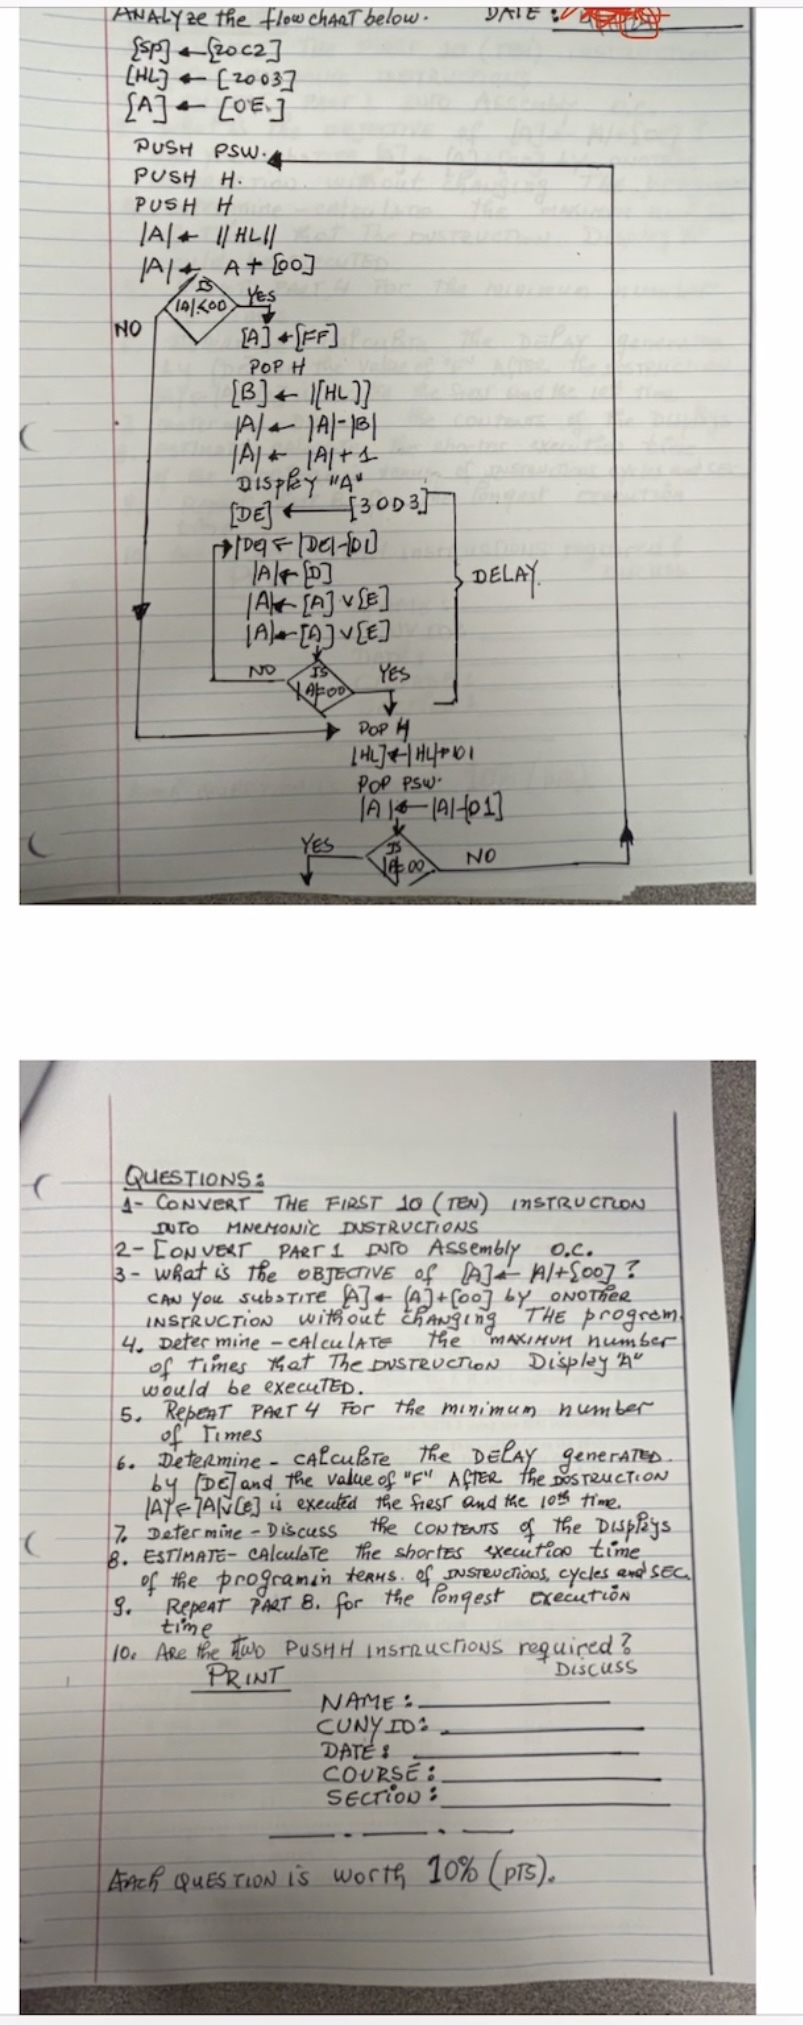 ANALYze the flowchart below. DATE:
[SP] ← [20C2]
[HL] ← [2003]
[A] ← [0E.]
PUSH PSW.
PUSH H.
PUSH H
|A| ← ||HL||
|A| ← A + [00]
IS
|A|<00
YES
NO
[A] ← [FF]
POP H
[B] ← |[HL]]
|A| ← |A|-|B|
|A| ← |A|+1
DISPLAY "A"
[DE] ← [30D3]
|DE| ← |DE|-[01]
|A| ← [D]
|A| ← [A] V [E]
|A| ← [A] V [E]
DELAY.
NO
IS
|A|=00
YES
POP H
[HL] ← |HL|+01
POP PSW.
|A| ← |A|-[01]
YES
IS
|A|=00
NO
QUESTIONS:
1- CONVERT THE FIRST 10 (TEN) INSTRUCTION
INTO MNEMONIC INSTRUCTIONS
2- CONVERT PART 1 INTO Assembly O.C.
3- What is the OBJECTIVE of [A] ← |A|+[00] ?
CAN you substite [A] ← [A]+[00] by ONOTHER
INSTRUCTION without changing THE program.
4. Determine - CALculATE the MAXIMUM number
of Times that The INSTRUCTION Display "A"
would be execuTED.
5. RepEAT PART 4 For the minimum number
of Times
6. Determine - CALCULATE the DELAY generATED.
by [DE] and the value of "F" AFTER the INSTRUCTION
|A| ← |A|v[e] is executed the first and the 10th time.
7. Determine - DISCUSS the CONTENTS of the Displays
8. ESTIMATE - CAlculate the shortes execution time
of the program in teRMS. of INSTRUCTIONS, cycles and SEC.
9. REPEAT PART 8. for the longest EXECUTION
time
10. ARE the TWO PUSH H INSTRUCTIONS required?
DISCUSS
PRINT
NAME:
CUNY ID:
DATE:
COURSE:
SECTION:
EACH QUESTION is worth 10% (PTS).